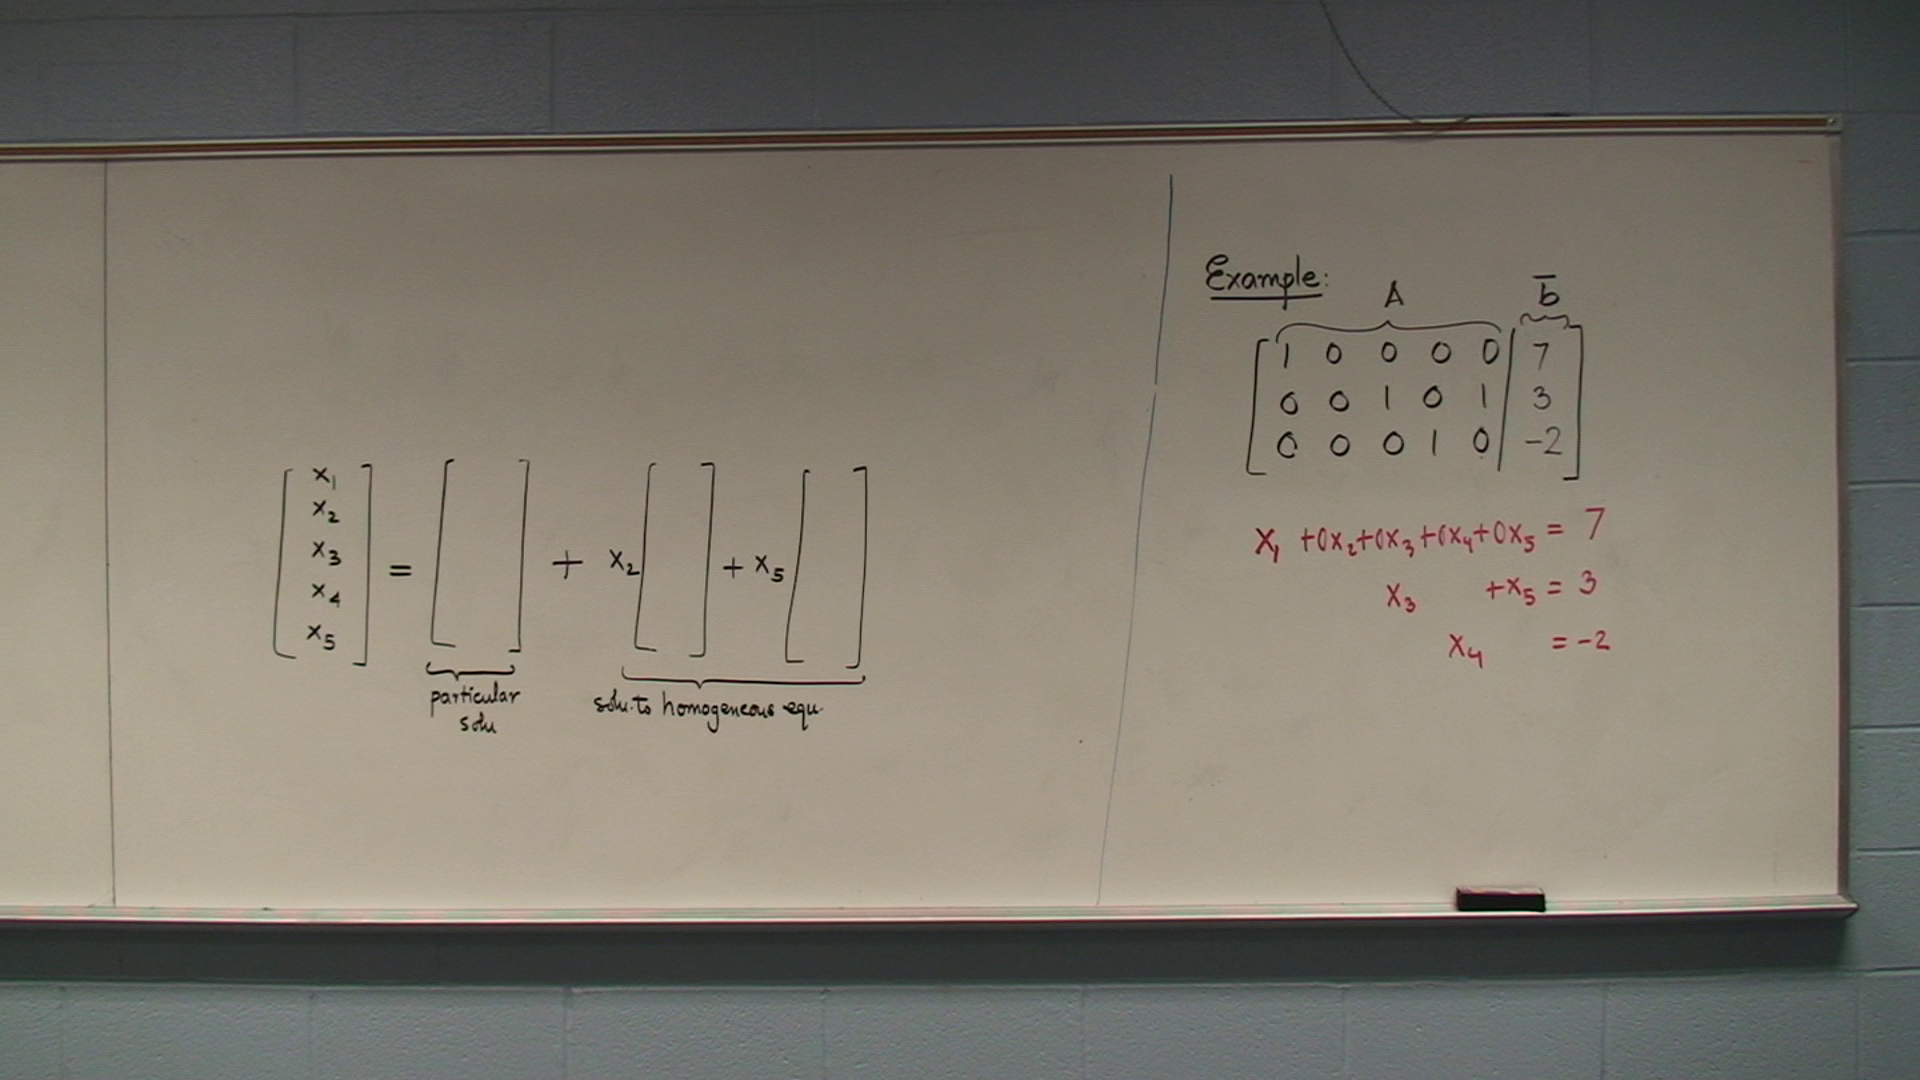 [x₁ x₂ x₃ x₄ x₅] = [ ] + x₂ [ ] + x₅ [ ]
particular
solu
solu. to homogeneous equ.
Example:
A b̅
1 0 0 0 0 | 7
0 0 1 0 1 | 3
0 0 0 1 0 | -2
x₁ +0x₂+0x₃+0x₄+0x₅ = 7
x₃ +x₅ = 3
x₄ = -2